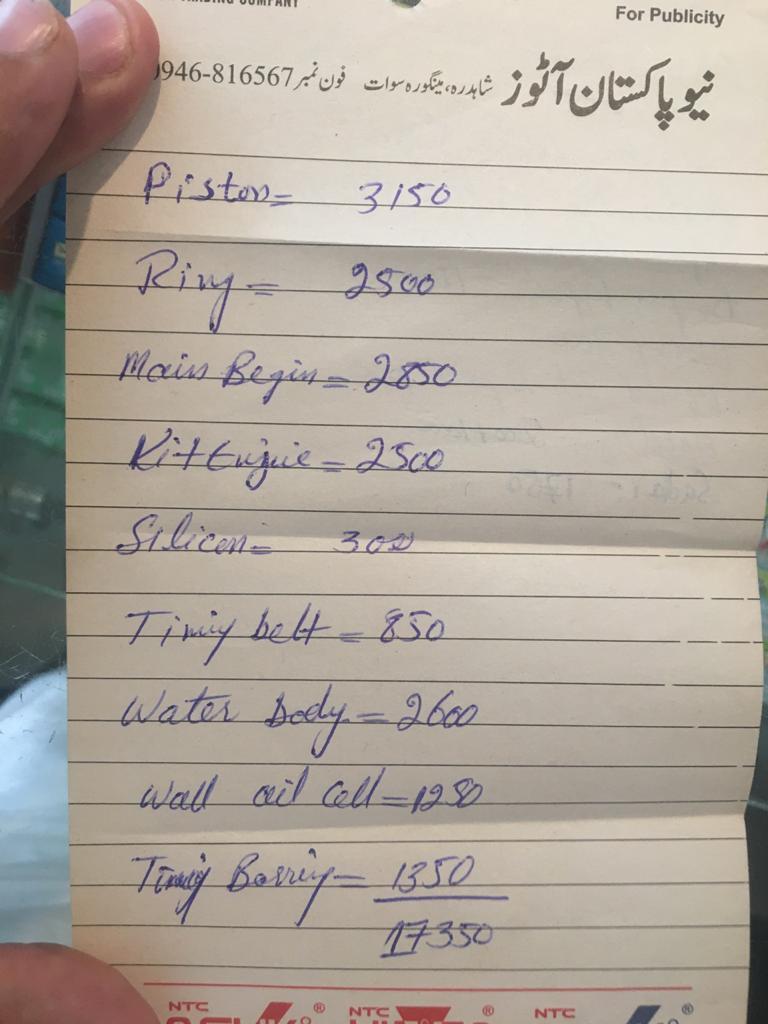 TRADING COMPANY
For Publicity
نیو پاکستان آٹوز شاہدرہ، مینگورہ سوات فون نمبر 0946-816567
Piston= 3150
Ring = 2500
Main Begin = 2850
Kit Engie = 2500
Silicon= 300
Timiy belt = 850
Water body = 2600
Wall oil Cell = 1250
Timiy Barriy = 1350
17350
NTC NTC NTC